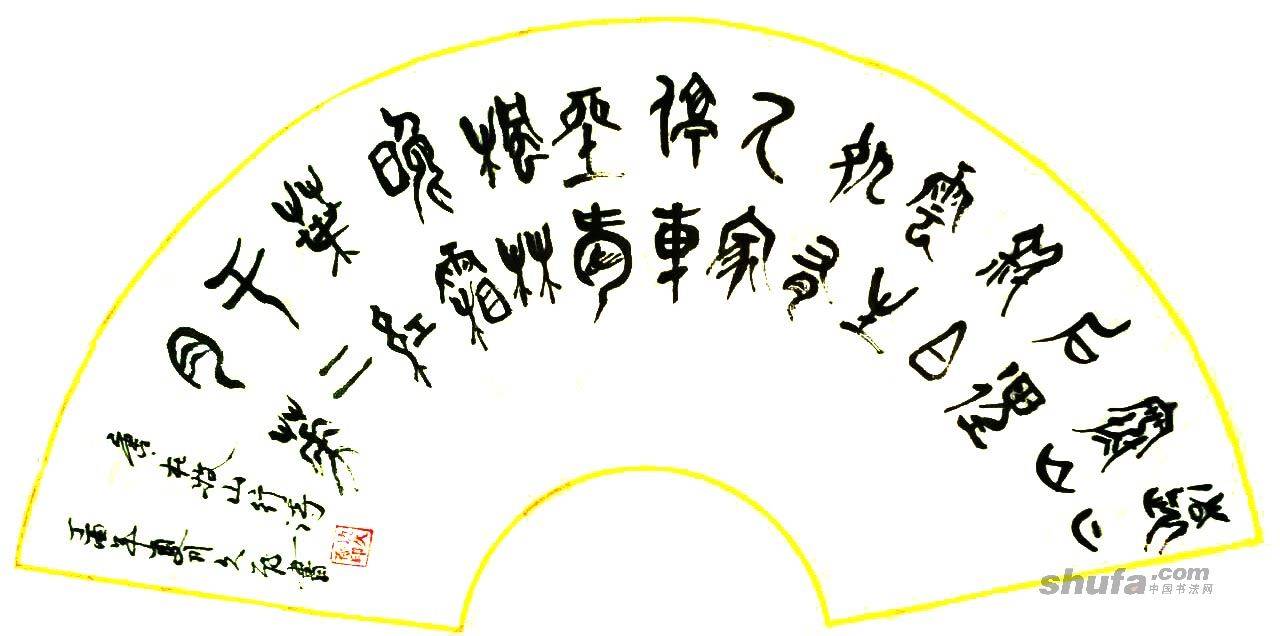 遠上
寒山
石徑
斜白
雲生
処有
人家
停車
坐愛
楓林
晚霜
葉紅
于二
月花
杜牧山行詩
丁酉年夏月久石書
shufa.com
中国书法网